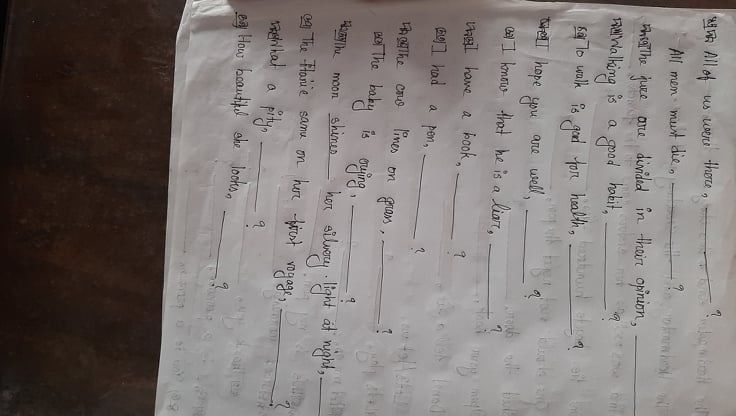 All of us were there, ________?
All men must die, ________?
The juce are divided in their opinion, ________
Walking is a good habit, ________?
To walk is good for health, ________?
I hope you are well, ________?
I know that he is a liar, ________?
I have a book, ________?
I had a pen, ________?
The cow lines on grass, ________?
The baby is crying, ________?
The moon shines her silvery light at night, ________
The Titanic sanu on her first voyage, ________?
What a pity, ________?
How beautiful she looks, ________?